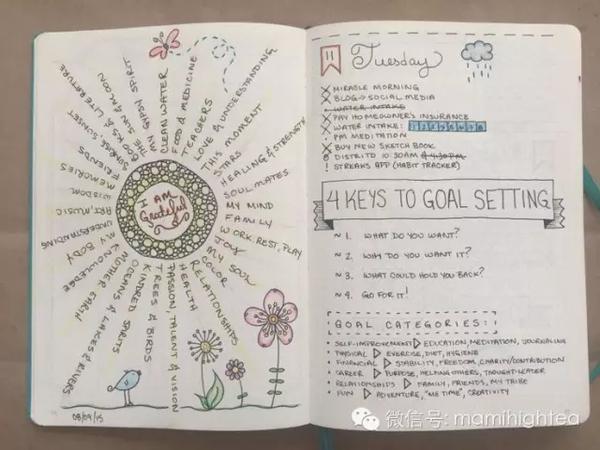 I AM
Grateful
CLEAN WATER
FOOD & MEDICINE
TEACHERS
LOVE & UNDERSTANDING
THIS MOMENT
STARS
HEALING & STRENGTH
SOULMATES
MY MIND
FAMILY
WORK, REST, PLAY
JOY
MY SOUL
COLOR
RELATIONSHIPS
HEALTH
PASSION, TALENT & VISION
TREES & BIRDS
KINDRED SPIRITS
OCEANS & LAKES & RIVERS
MOTHER EARTH
KNOWLEDGE
MY BODY
UNDERSTANDING
ART, MUSIC
WISDOM
MEMORIES
FRIENDS
SUNRISE, SUNSET
BOOKS & LITERATURE
THE SUN & MOON
MY GYPSY SPIRIT
08/09/15
11
Tuesday
X MIRACLE MORNING
X BLOG → SOCIAL MEDIA
WATER INTAKE
X PAY HOMEOWNER'S INSURANCE
X WATER INTAKE: 1 2 3 4 5 6 7 8
• PM MEDITATION
X BUY NEW SKETCH BOOK
DISTRITO 10:30AM & 4:30PM
! STREAKS APP (HABIT TRACKER)
4 KEYS TO GOAL SETTING
~ 1. WHAT DO YOU WANT?
~ 2. WHY DO YOU WANT IT?
~ 3. WHAT COULD HOLD YOU BACK?
~ 4. GO FOR IT!
GOAL CATEGORIES:
• SELF-IMPROVEMENT ▷ EDUCATION, MEDITATION, JOURNALING
• PHYSICAL ▷ EXERCISE, DIET, HYGIENE
• FINANCIAL ▷ STABILITY, FREEDOM, CHARITY/CONTRIBUTION
• CAREER ▷ PURPOSE, HELPING OTHERS, THOUGHT LEADER
• RELATIONSHIPS ▷ FAMILY, FRIENDS, MY TRIBE
• FUN ▷ ADVENTURE, "ME TIME", CREATIVITY
微信号: mamihightea